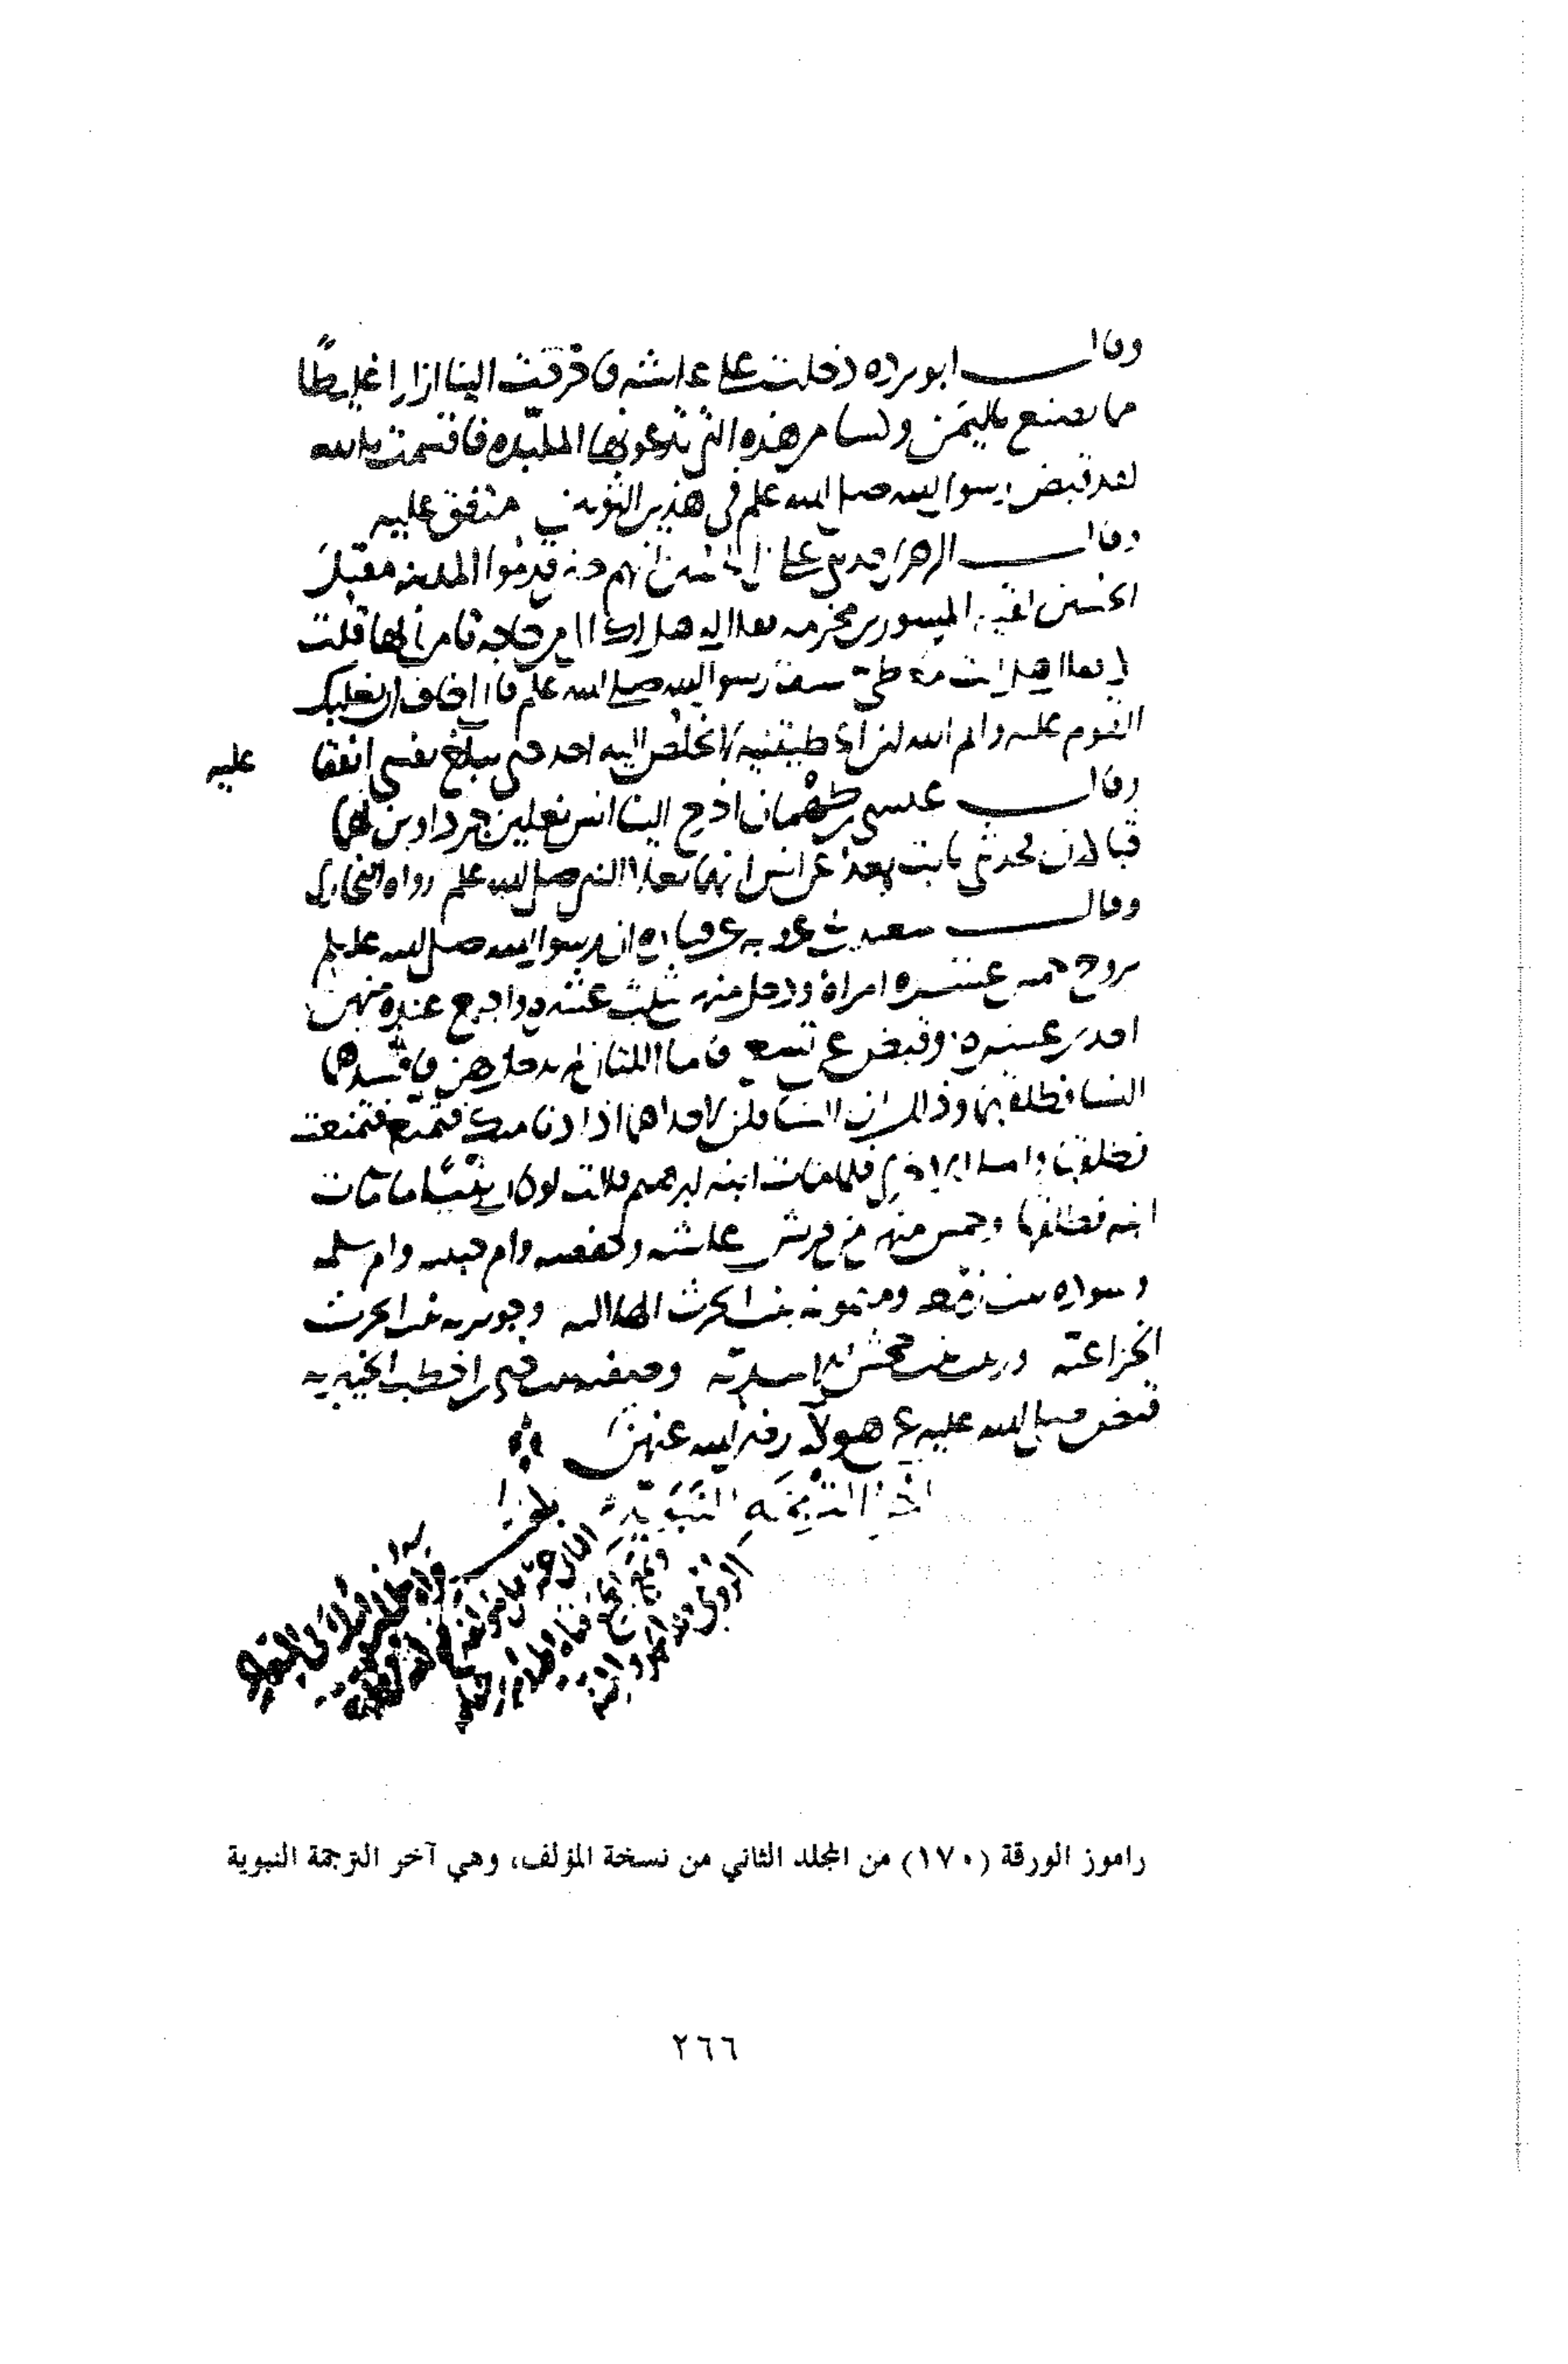 وقال ابو برده دخلت على عائشه فاخرجت الينا ازارا غليظًا
مما يصنع باليمن وكسا من هذه التي تدعونها الملبّده فاقسمت بالله
لقد قبض رسول الله صلى الله علم في هذين الثوبين متفق عليه
وقال الزهري حدثني على بن الحسين انهم حين قدموا المدينه مقتلَ
الحسين لقيه المسور بن مخرمه فقال له هل لك الي من حاجه تامرني بها قلت
لا فقال هل انت معطيّ سيف رسول الله صلى الله علم فاني اخاف ان يغلبك
القوم عليه وايم الله لئن اعطيتنيه لا يخلص اليه احد حتى يبلغ نفسي اتفقا عليه
وقال عيسى بن طهمان اخرج الينا انس نعلين جرداوين لهما
قبالان فحدثني ثابت بعد عن انس انهما نعلا النبي صلى الله علم رواه البخاري
وقال سعيد بن ابي عروبه عن قتاده ان رسول الله صلى الله عليلم
تزوج خمس عشره امراة ودخل منهن بثلث عشره واجتمع عنده منهن
احدى عشره وقبض عن تسع فاما اللتان لم يدخل بهن فافسدهما
النسا فطلقهما وذلك ان النسا قلن لاحداهما اذا دنا منك فتمنعي فتمنعت
فطلقها واما الاخرى فلما مات ابنه ابرهيم قالت لو كان نبيًّا ما مات
ابنه فطلقها وخمس منهن من قريش عائشه وحفصه وام حبيبه وام سلمه
وسوده بنت زمعه وميمونه بنت الحرث الهلاليه وجويريه بنت الحرث
الخزاعيّه وزينب بنت جحش الاسديّه وصفيه بنت حيي بن اخطب الخيبريه
قبض صلى الله عليه عن هولآ رضي الله عنهن
آخر الترجمَه النَّبَويّه
راموز الورقة (١٧٠) من المجلد الثاني من نسخة المؤلف، وهي آخر الترجمة النبوية
٢٦٦